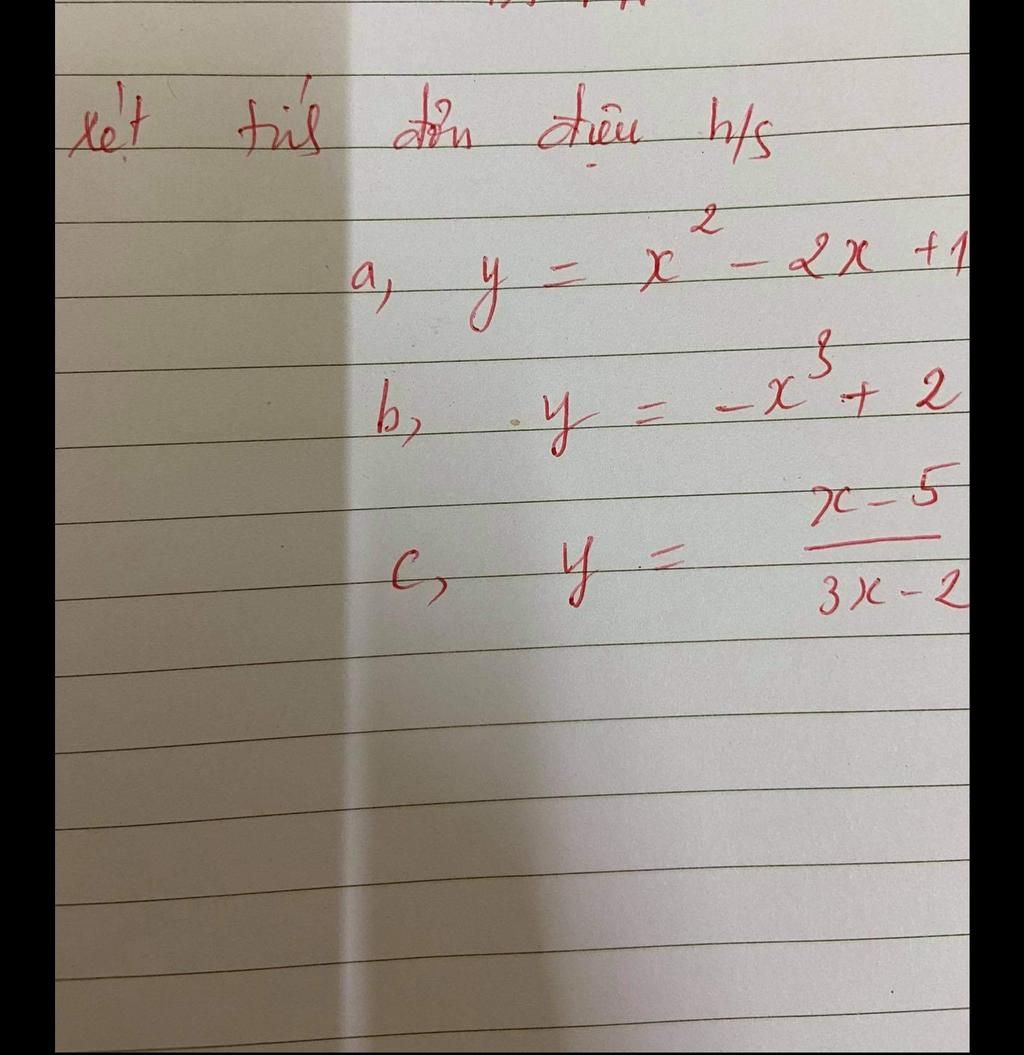 xét tính đơn điệu h/s
a, y = x² - 2x + 1
b, y = -x³ + 2
c, y = \frac{x-5}{3x-2}